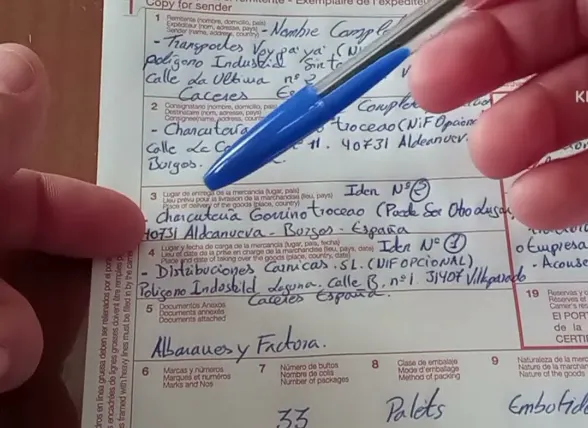 Copy for sender
remitente - Exemplaire de l'expéditeur
1 Remitente (nombre, domicilio, país)
Expéditeur (nom, adresse, pays)
Sender (name, address, country)
- Nombre Comple
- Transportes Voy pa'ya' (Ni
polígono Industrial Sin
Calle La Ultima nº
Caceres Es
2 Consignatario (nombre, domicilio, país)
Destinataire (nom, adresse, pays)
Consignee (name, address, country)
Complet
- Charcutería troceao (NiF Opcion
Calle La 11. 40731 Aldeanuev
Burgos.
3 Lugar de entrega de la mercancía (lugar, país)
Lieu prévu pour la livraison de la marchandise (lieu, pays)
Place of delivery of the goods (place, country)
Iden Nº 2
- Charcutería Gorrino troceao (Puede Ser Otro Lugar,
40731 Aldeanueva - Burgos - España
4 Lugar y fecha de carga de la mercancía (lugar, país, fecha)
Lieu et date de la prise en charge de la marchandise (lieu, pays, date)
Place and date of taking over the goods (place, country, date)
Iden Nº 1
- Distribuciones Carnicas. S.L. (NIF OPCiONAL)
Polígono Indusbild Laguna. Calle B, nº 1 31407 Villaparado
Caceres España.
5 Documentos Anexos
Documents annexés
Documents attached
Albaranes y Factora.
o Empresa
- Acouse
19 Reservas y o
Réserves et o
Carrier's res
El POR
DE LA
CERTI
6 Marcas y números
Marques et numéros
Marks and Nos
7 Número de bultos
Nombre de colis
Number of packages
8 Clase de embalaje
Mode d'emballage
Method of packing
9 Naturaleza de la merc
Nature de la marchan
Nature of the goods
33
Palets
Embotid